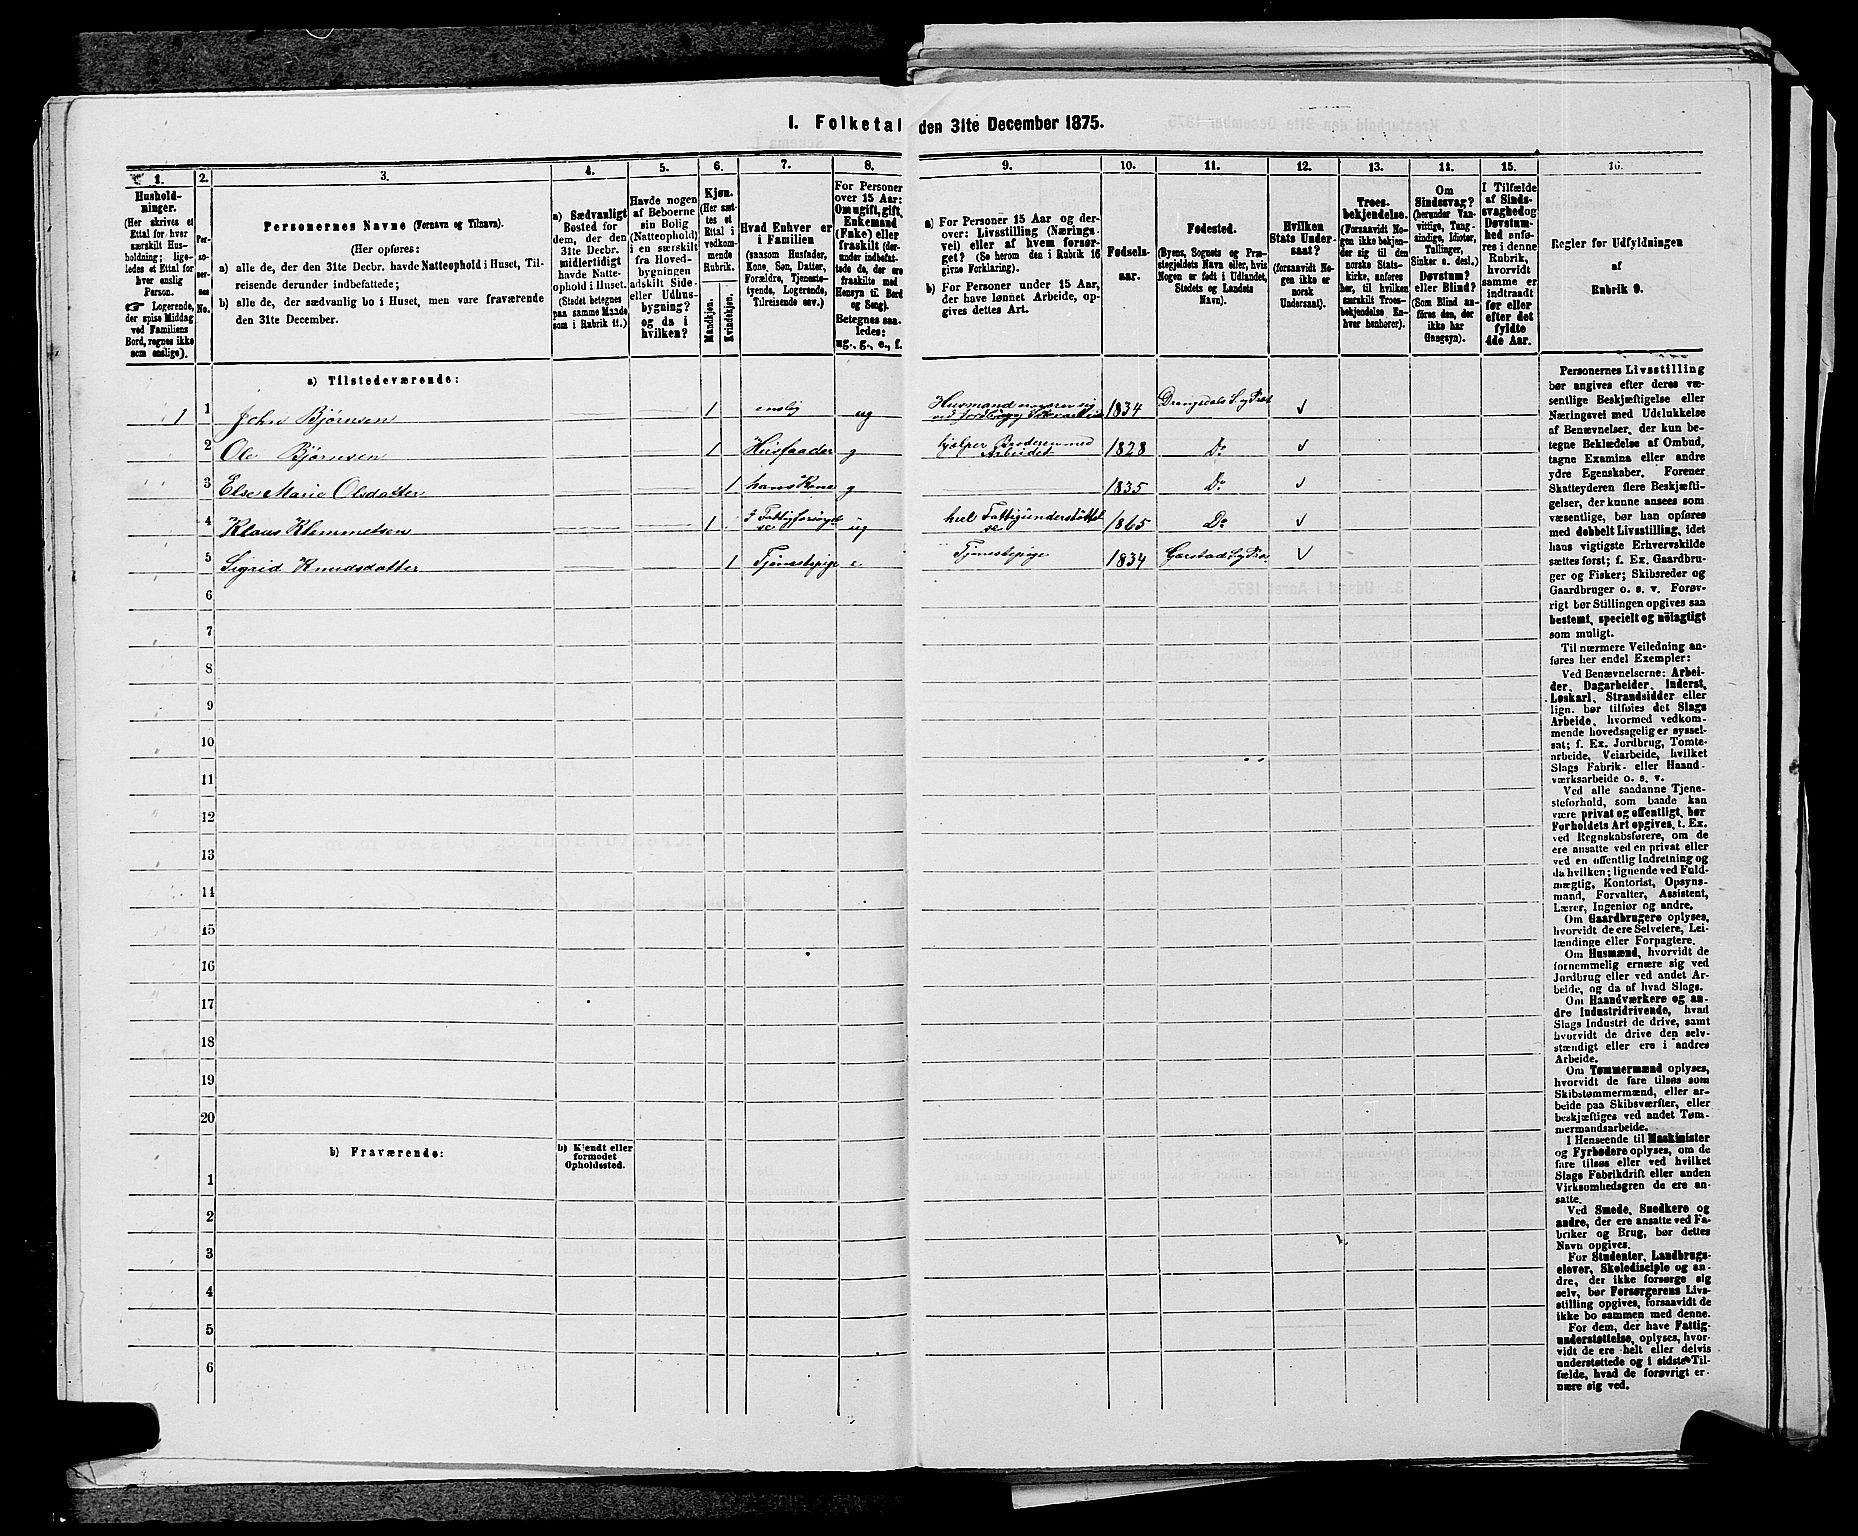 1. Folketal den 31te December 1875.
1.
Hushold-
ninger.
(Her skrives et
Ettal for hver
særskilt Hus-
holdning; lige-
ledes et Ettal for
hver enslig
Person.
☞ Logerende,
der spise Middag
ved Familiens
Bord, regnes ikke
som enslige).
2.
Per-
soner-
nes
No.
3.
Personernes Navne (Fornavn og Tilnavn).
(Her opføres:
a) alle de, der den 31te Decbr. havde Natteophold i Huset, Til-
reisende derunder indbefattede;
b) alle de, der sædvanlig bo i Huset, men vare fraværende
den 31te December.
4.
a) Sædvanligt
Bosted for
dem, der den
31te Decbr.
midlertidigt
havde Natte-
ophold i Huset.
(Stedet betegnes
paa samme Maade
som i Rubrik 11.)
5.
Havde nogen
af Beboerne
sin Bolig
(Natteophold)
i en særskilt
fra Hoved-
bygningen
adskilt Side-
eller Udhus-
bygning?
og da i
hvilken?
6.
Kjøn.
(Her sæt-
tes et
Ettal i
vedkom-
mende
Rubrik.
Mandkjøn.
Kvindekjøn.
7.
Hvad Enhver er
i Familien
(saasom Husfader,
Kone, Søn, Datter,
Forældre, Tjeneste-
tyende, Logerende,
Tilreisende osv.)
8.
For Personer
over 15 Aar:
Om ugift, gift,
Enkemand
(Enke) eller
fraskilt (der-
under indbefat-
tede de, der ere
fraskilte med
Hensyn til Bord
og Seng).
Betegnes saa-
ledes:
ug., g., e., f.
9.
a) For Personer 15 Aar og der-
over: Livsstilling (Nærings-
vei) eller af hvem forsør-
get? (Se herom den i Rubrik 16
givne Forklaring).
b) For Personer under 15 Aar,
der have lønnet Arbeide, op-
gives dettes Art.
10.
Fødsels-
aar.
11.
Fødested.
(Byens, Sognets og Præ-
stegjeldets Navn eller, hvis
Nogen er født i Udlandet,
Stedets og Landets
Navn).
12.
Hvilken
Stats Under-
saat?
(forsaavidt No-
gen ikke er
norsk
Undersaat).
13.
Troes-
bekjendelse.
(Forsaavidt No-
gen ikke bekjen-
der sig til den
norske Stats-
kirke, anføres
her, til hvilken
særskilt Troes-
bekjendelse En-
hver henhører).
14.
Om
Sindssvag?
(herunder Van-
vittige, Tung-
sindige, Idioter,
Tullinger,
Sinker o. desl.)
Døvstum?
eller Blind?
(Som Blind an-
føres den, der
ikke har
Gangsyn).
15.
I Tilfælde
af Sinds-
svaghed og
Døvstum-
hed anfø-
res i denne
Rubrik,
hvorvidt
samme er
indtraadt
før eller
efter det
fyldte
4de Aar.
16.
Regler for Udfyldningen
af
Rubrik 9.
a) Tilstedeværende:
1 1 John Bjørnsen 1 enslig ug Husmand 1834 Drangedals S. og Præst ✓
2 Ole Bjørnsen 1 Husfaader g hjelper Broderen med Arbeidet 1828 Do ✓
3 Else Marie Olsdatter 1 hans Kone g 1835 Do ✓
4 Klaus Klemmetsen 1 ug 1865 Do ✓
5 Sigrid Knudsdatter 1 Tjenestepige e Tjenestepige 1834 ✓
6
7
8
9
10
11
12
13
14
15
16
17
18
19
20
b) Fraværende:
b) Kjendt eller
formodet
Opholdssted.
1
2
3
4
5
6
Personernes Livsstilling
bør angives efter deres væ-
sentlige Beskjæftigelse eller
Næringsvei med Udelukkelse
af Benævnelser, der kun be-
tegne Beklædelse af Ombud,
tagne Examina eller andre
ydre Egenskaber. Forener
Skatteyderen flere Beskjæfti-
gelser, der kunne ansees som
væsentlige, bør han opføres
med dobbelt Livsstilling, idet
hans vigtigste Erhvervskilde
sættes først; f. Ex. Gaardbru-
ger og Fisker; Skibsreder og
Gaardbruger o. s. v. Forøv-
rigt bør Stillingen opgives saa
bestemt, specielt og nöiagtigt
som muligt.
Til nærmere Veiledning an-
føres her endel Exempler:
Ved Benævnelserne: Arbei-
der, Dagarbeider, Inderst,
Løskarl, Strandsidder eller
lign. bør tilføies det Slags
Arbeide, hvormed vedkom-
mende hovedsagelig er syssel-
sat; f. Ex. Jordbrug, Tomte-
arbeide, Veiarbeide, hvilket
Slags Fabrik- eller Haand-
værksarbeide o. s. v.
Ved alle saadanne Tjene-
steforhold, som baade kan
være privat og offentligt, bør
Forholdets Art opgives, t. Ex.
ved Regnskabsførere, om de
ere ansatte ved en privat eller
ved en offentlig Indretning og
da hvilken; lignende ved Fuld-
mægtig, Kontorist, Opsyns-
mand, Forvalter, Assistent,
Lærer, Ingeniør og andre.
Om Gaardbrugere oplyses,
hvorvidt de ere Selveiere, Lei-
lændinge eller Forpagtere.
Om Husmænd, hvorvidt de
fornemmelig ernære sig ved
Jordbrug eller ved andet Ar-
beide, og da af hvad Slags.
Om Haandværkere og an-
dre Industridrivende, hvad
Slags Industri de drive, samt
hvorvidt de drive den selv-
stændigt eller ere i andres
Arbeide.
Om Tømmermænd oplyses,
hvorvidt de fare tilsøs som
Skibstømmermænd, eller ar-
beide paa Skibsværfter, eller
beskjæftiges ved andet Tøm-
mermandsarbeide.
I Henseende til Maskinister
og Fyrbødere oplyses, om de
fare tilsøs eller ved hvilket
Slags Fabrikdrift eller anden
Virksomhedsgren de ere an-
satte.
Ved Smede, Snedkere og
andre, der ere ansatte ved Fa-
briker og Brug, bør dettes
Navn opgives.
For Studenter, Landbrugs-
elever, Skoledisciple og an-
dre, der ikke forsørge sig
selv, bør Forsørgerens Livs-
stilling opgives, forsaavidt de
ikke bo sammen med denne.
For dem, der have Fattig-
understøttelse, oplyses, hvor-
vidt de ere helt eller delvis
understøttede og i sidste Til-
fælde, hvad de forøvrigt er-
nære sig ved.